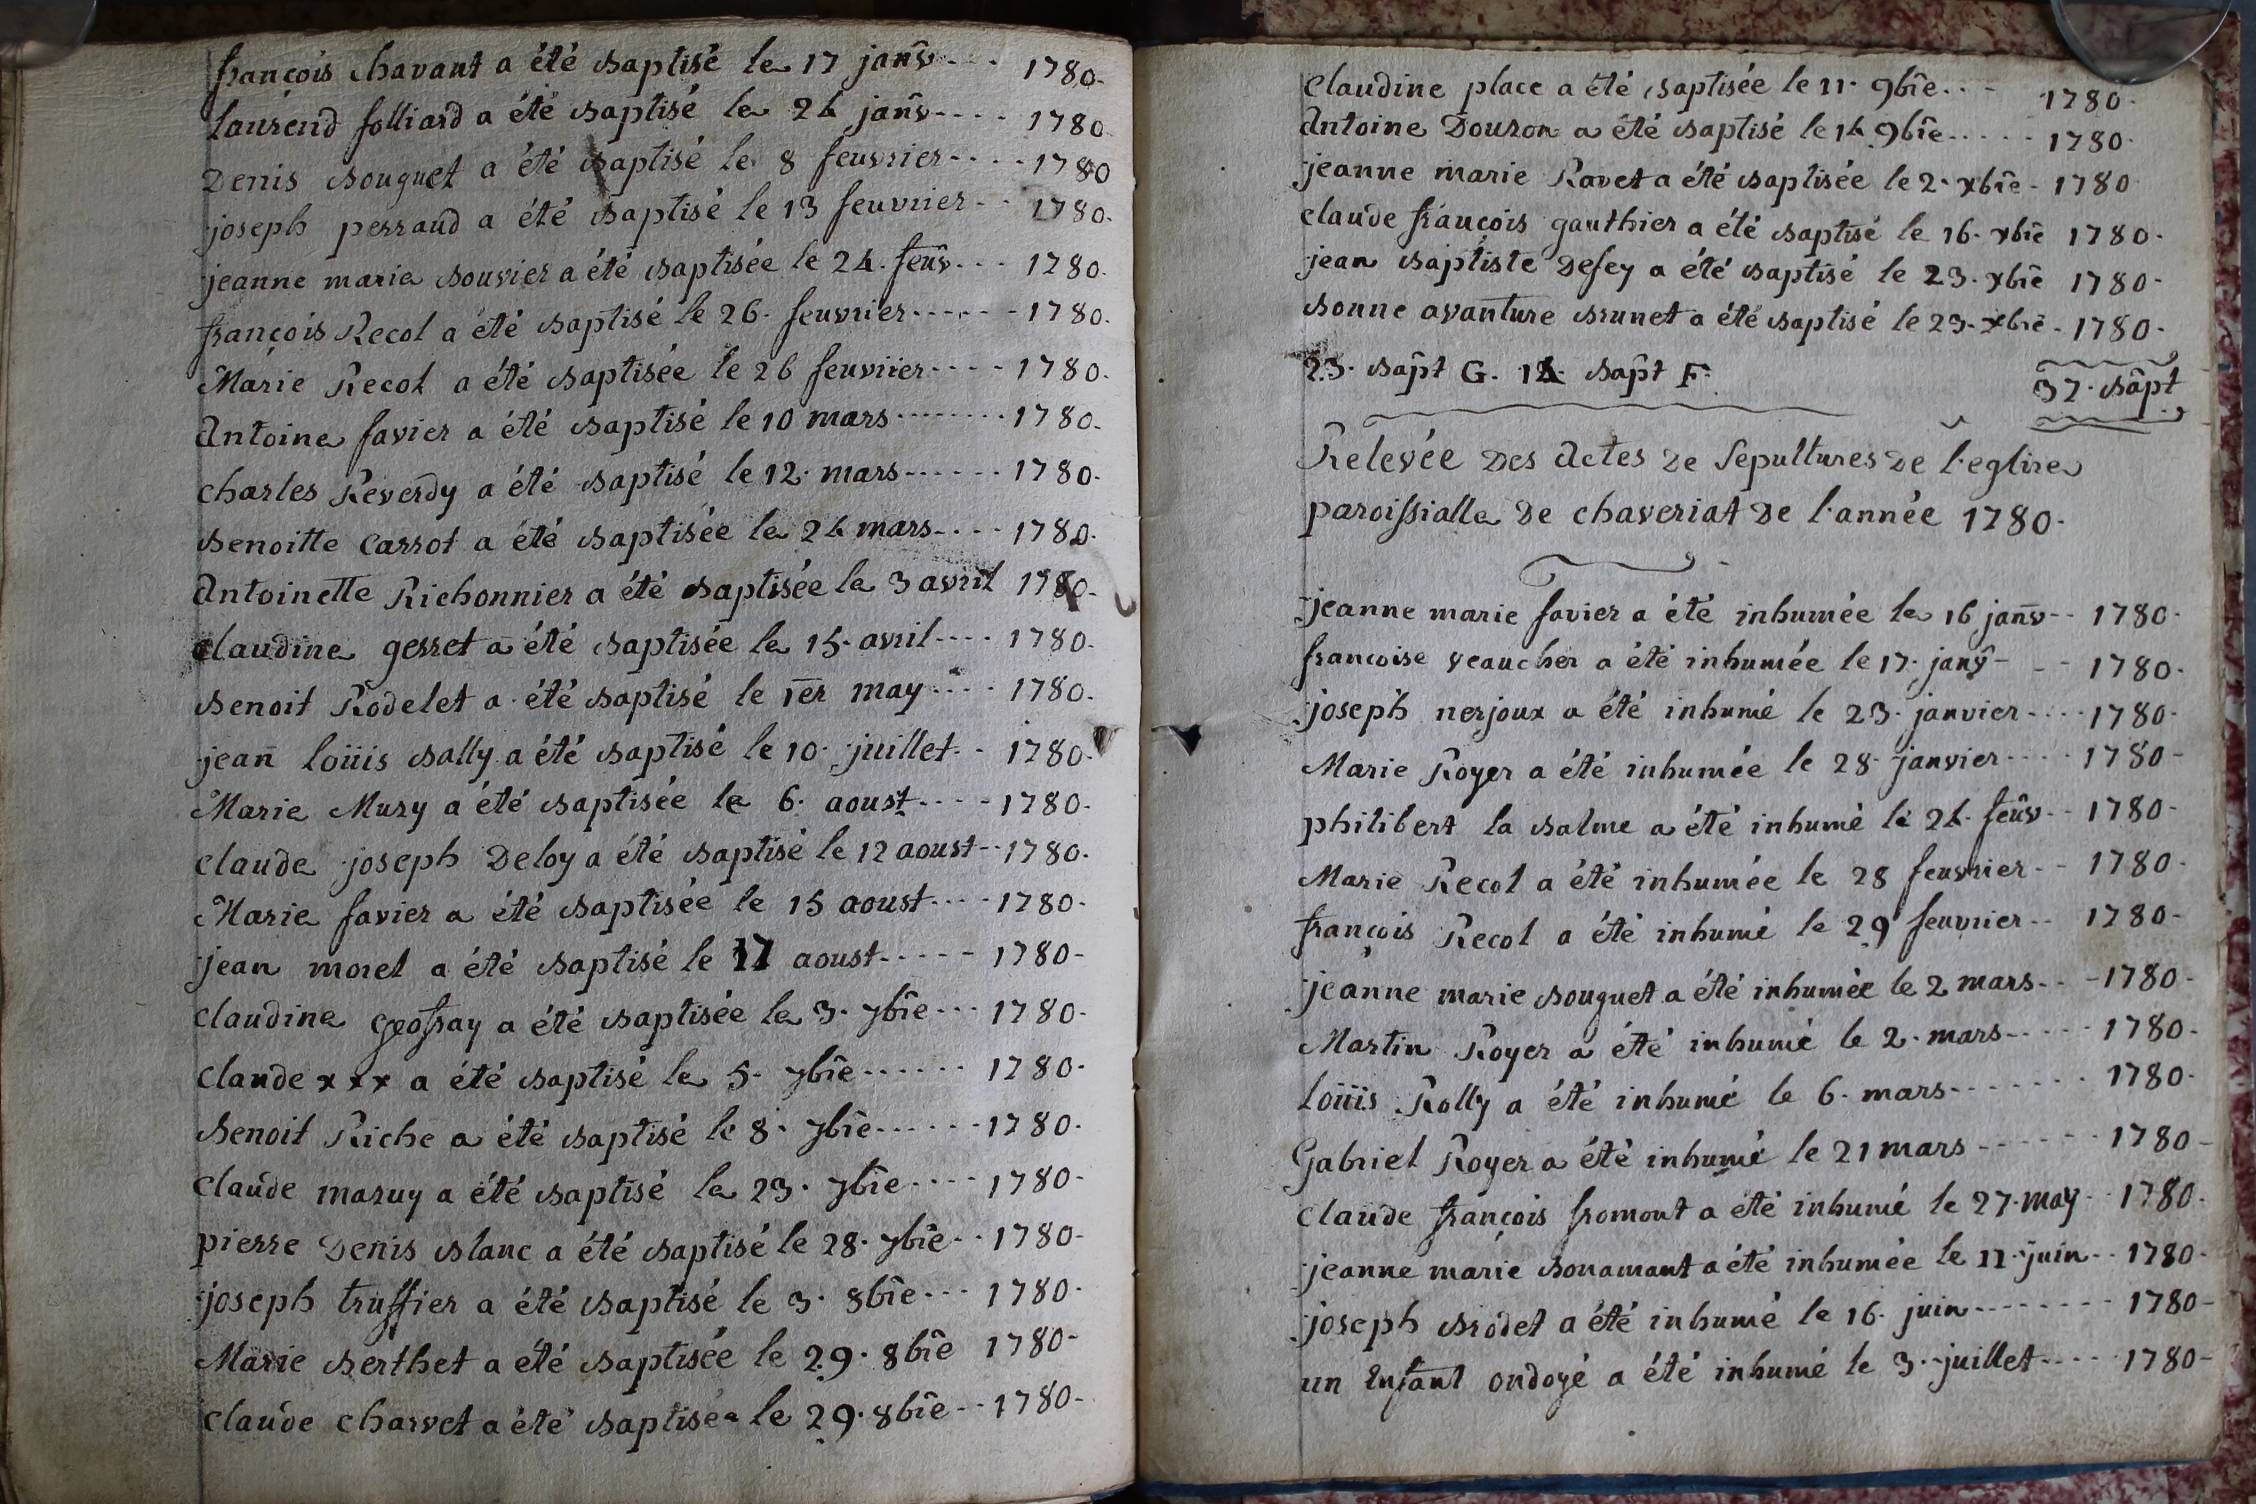 françois chavant a été baptisé le 17 janv̂ - - - 1780-
laurend folliard a été baptisé le 24 janv̂ - - - - 1780
Denis bouguet a été baptisé le 8 feuvrier - - - - 1780
joseph perraud a été baptisé le 13 feuvrier - - 1780.
jeanne marie bouvier a été baptisée le 24. feûv - - - 1780.
françois Recol a été baptisé le 26. feuvrier - - - - - 1780.
Marie Recol a été baptisée le 26 feuvrier - - - - 1780.
Antoine favier a été baptisé le 10 mars - - - - - - - 1780.
charles Reverdy a été baptisé le 12. mars - - - - - - 1780.
benoitte carrot a été baptisée le 24 mars - - - - 1780.
Antoinette Richonnier a été baptisée le 3 avril 1780-
claudine gerret a été baptisée le 15. avril - - - - 1780.
benoit Rodelet a été baptisé le 1er may - - - - 1780.
jean loüis bally a été baptisé le 10. juillet - - 1780.
Marie Mury a été baptisée le 6. aoust - - - - 1780.
claude joseph Deloy a été baptisé le 12 aoust - - 1780.
Marie favier a été baptisée le 15 aoust - - - - 1780-
jean morel a été baptisé le 17 aoust - - - - - 1780-
claudine geoffray a été baptisée le 3. 7bre - - - 1780-
claude xxx a été baptisé le 5. 7bre - - - - - - 1780-
benoit Riche a été baptisé le 8. 7bre - - - - - - 1780.
claude maruy a été baptisé le 23. 7bre - - - - 1780-
pierre Denis blanc a été baptisé le 28. 7bre - - 1780-
joseph truffier a été baptisé le 3. 8bre - - - 1780-
Marie berthet a été baptisée le 29. 8bre 1780-
claude charvet a été baptisé le 29. 8bre - - 1780-
claudine place a été baptisée le 11. 9bre - - - 1780.
Antoine Douron a été baptisé le 14 9bre - - - - - 1780.
jeanne marie Ravet a été baptisée le 2. xbre - 1780
claude françois gauthier a été baptisé le 16. xbre 1780-
jean baptiste Defey a été baptisé le 23. xbre 1780-
bonne avanture brunet a été baptisé le 23. xbre - 1780-
23. bapt G. 14. bapt F. 37. bapt
Relevée Des Actes De Sepultures De l'eglise
paroissialle De chaveriat De l'année 1780.
jeanne marie favier a été inhumée le 16 janv̂ - - 1780-
francoise veaucher a été inhumée le 17. janv̂ - - - 1780.
joseph nerjoux a été inhumé le 23. janvier - - - - 1780-
Marie Royer a été inhumée le 28. janvier - - - - 1780-
philibert la balme a été inhumé le 24. feûv - - 1780-
Marie Recol a été inhumée le 28 feuvrier - - 1780-
françois Recol a été inhumé le 29 feuvrier - - 1780-
jeanne marie bouguet a été inhumée le 2 mars - - - 1780-
Martin Royer a été inhumé le 2. mars - - - - - 1780-
loüis Rolly a été inhumé le 6. mars - - - - - - - 1780-
Gabriel Royer a été inhumé le 21 mars - - - - - - 1780-
claude françois fromont a été inhumé le 27. may - - 1780-
jeanne marie bonamant a été inhumée le 11. juin - - 1780-
joseph brodet a été inhumé le 16. juin - - - - - - - 1780-
un Enfant ondoyé a été inhumé le 3. juillet - - - - 1780-